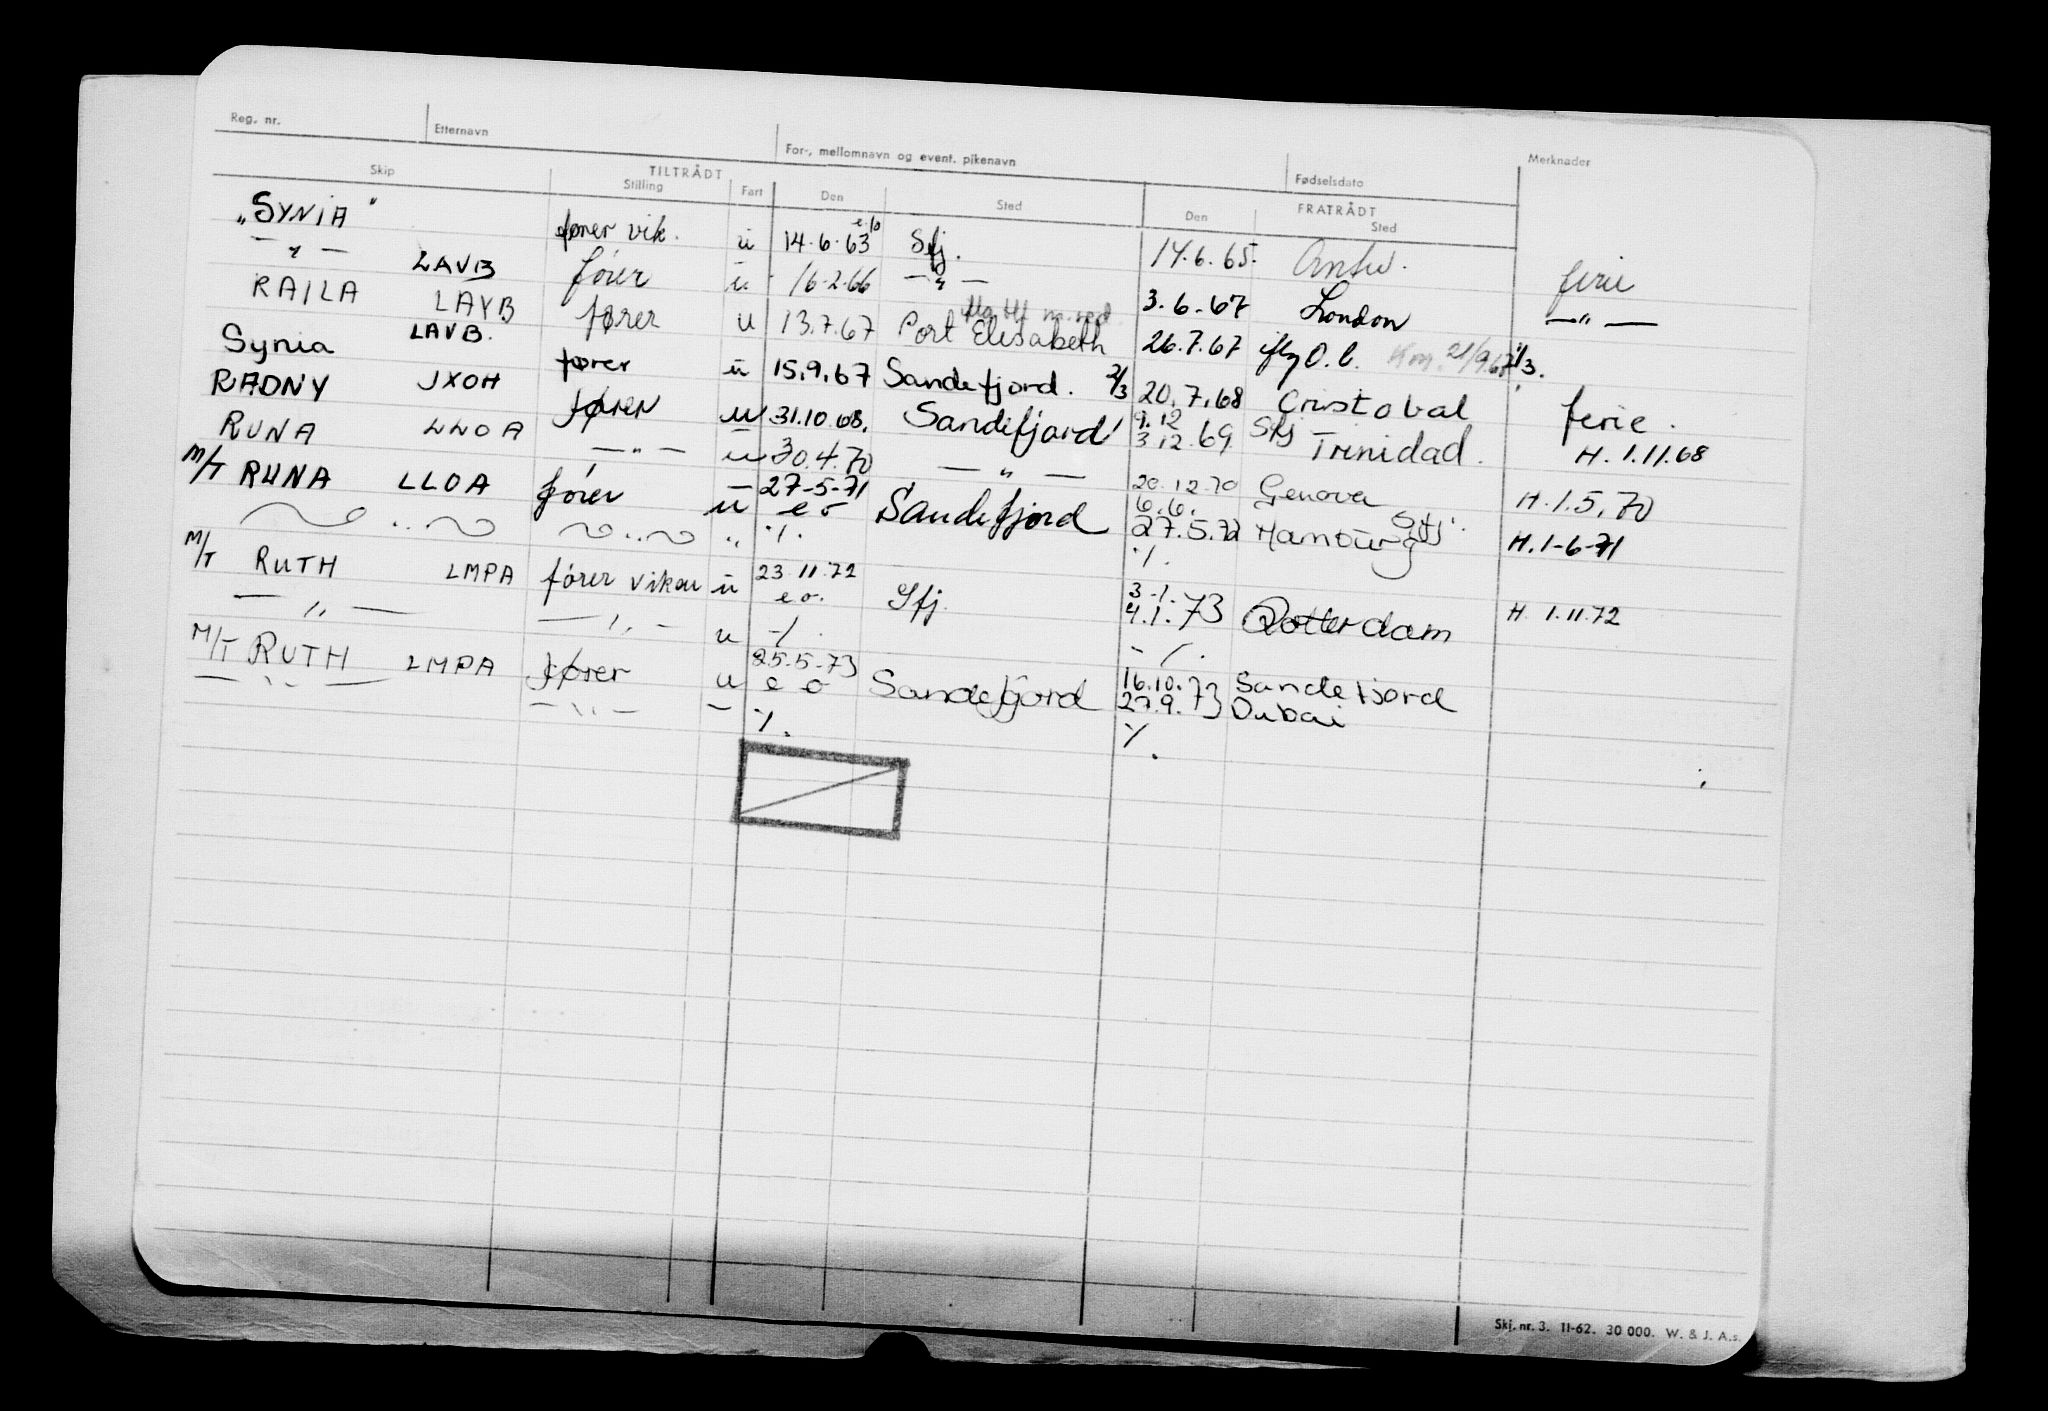 Reg. nr. Etternavn For-, mellomnavn og event. pikenavn Fødselsdato Merknader
Skip TILTRÅDT Stilling Fart Den Sted FRATRÅDT Den Sted
"SYNIA" fører vik. u 14.6.63 Sfj. 14.6.65. Antw. ferie
— " — LAVB fører u 16-2-66 — " — 3.6.67 London — " —
RAILA LAYB fører u 13.7.67 Port Elisabeth 26.7.67 O.b. 21/9.67 1/3.
Synia LAVB. fører u 15.9.67 Sandefjord. 2/3 20.7.68 Cristobal ferie.
RADNY JXOH fører u 31.10.68. Sandefjord 9.12 3.12.69 Sfj Trinidad. H. 1.11.68
RUNA LLOA — " — u 30.4.70 — " — 20.12.70 Genova H. 1.5.70
M/T RUNA LLOA fører u 27-5-71 e o Sandefjord 6.6. 27.5.72 Sfj. Hamburg H. 1-6-71
" " " ./. ./.
M/T RUTH LMPA fører vikar u 23.11.72 e o. Sfj. 3.1. 4.1.73 Rotterdam H. 1.11.72
— " — — " — u ./. ./.
M/T RUTH LMPA fører u 25-5-73 e o Sandefjord 16.10.73 Sandefjord
— " — — " — — ./. 27.9.73 Dubai
./.
Skj. nr. 3. 11-62. 30 000. W. & J. A.s.